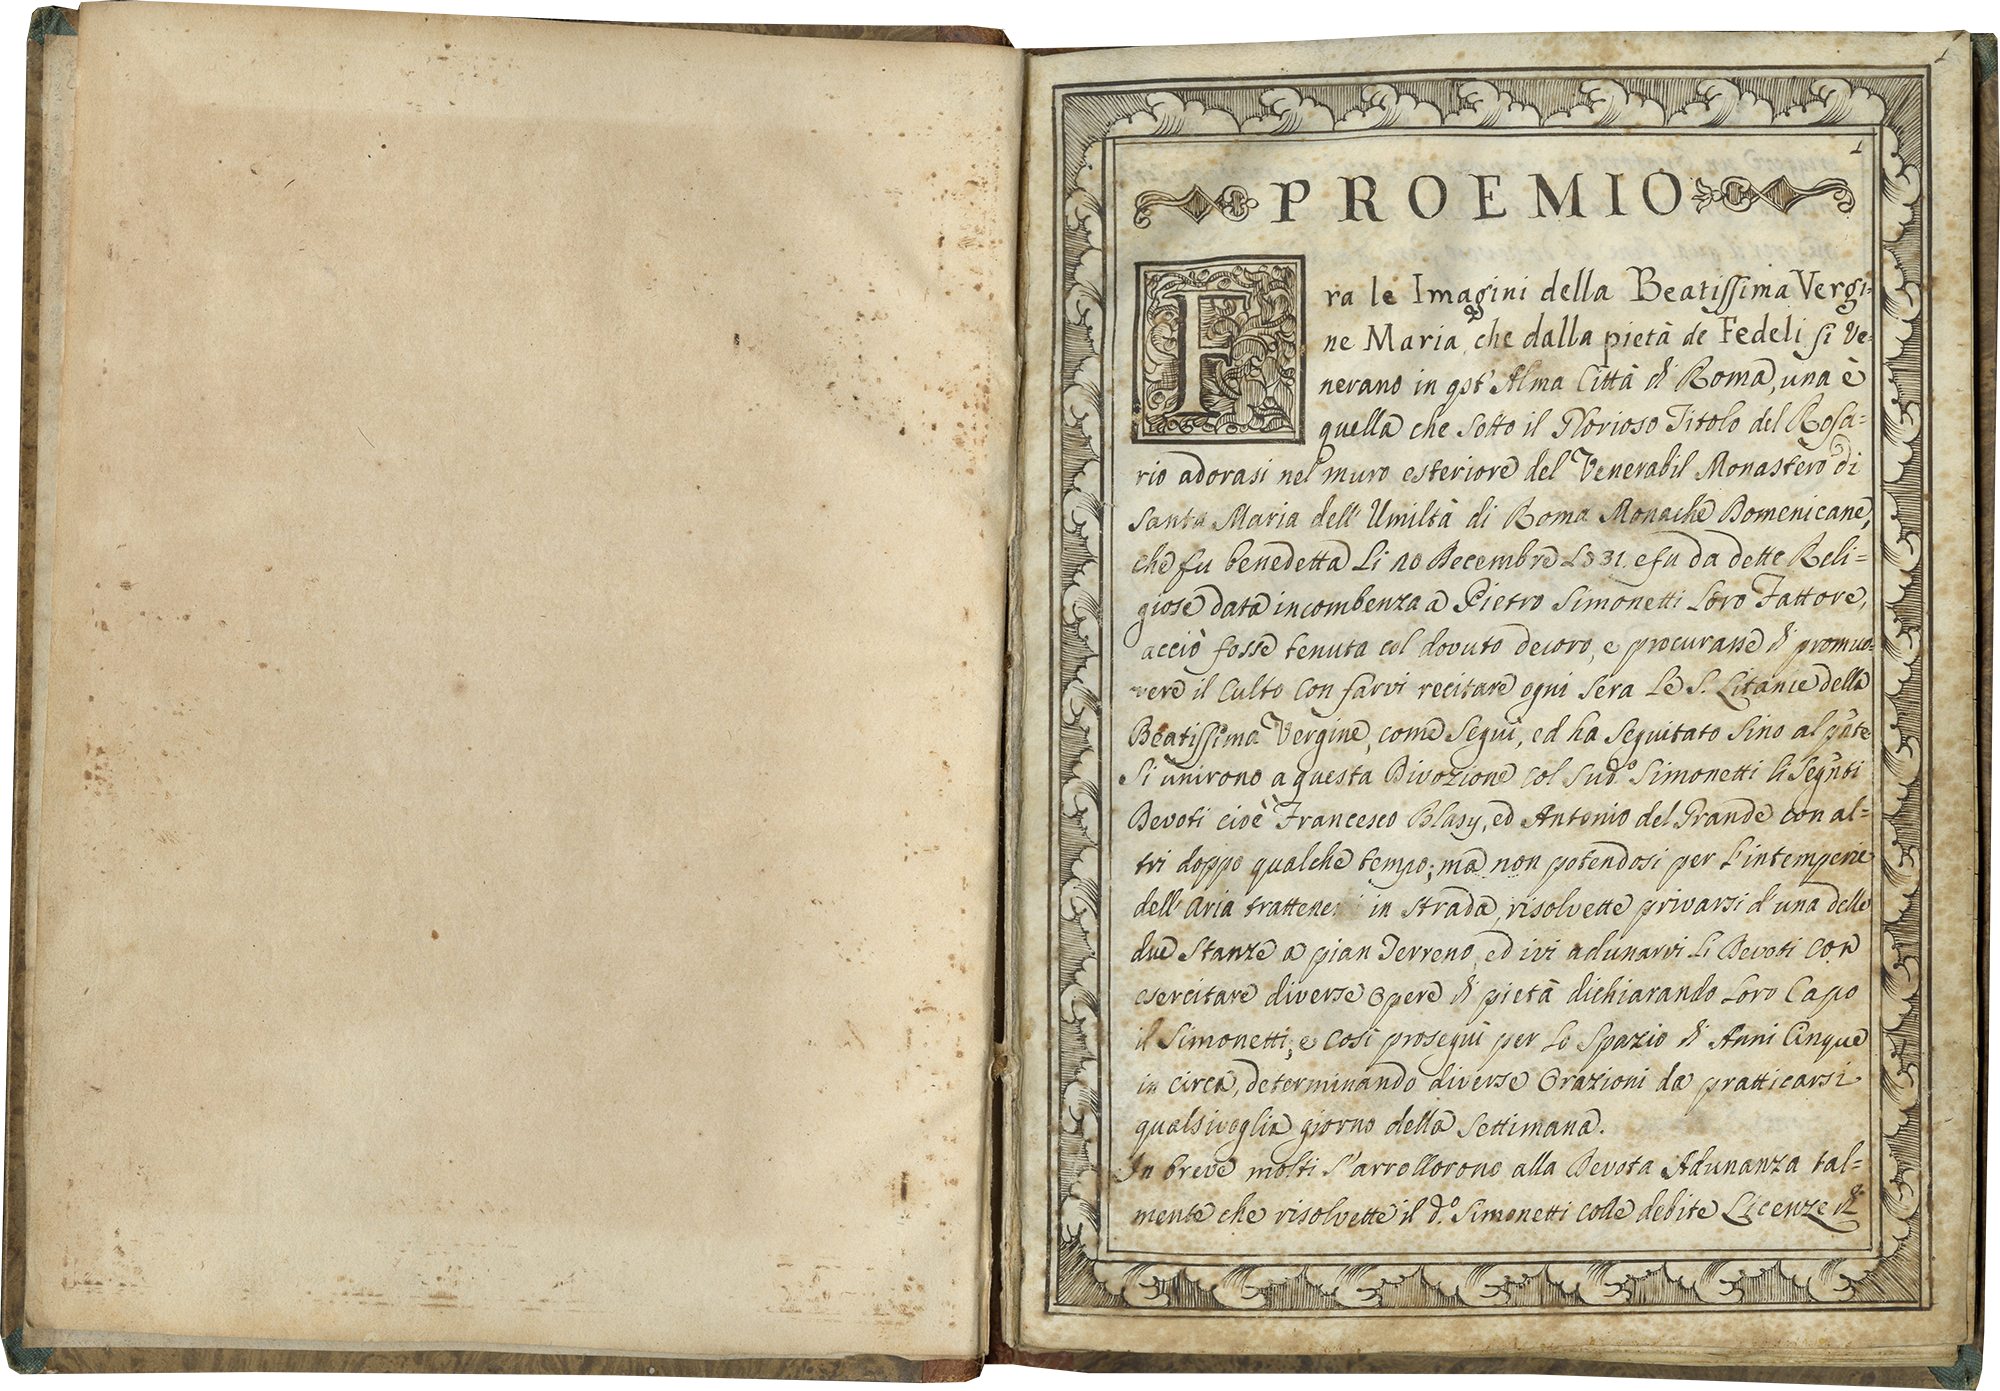 1
1
PROEMIO
Fra le Imagini della Beatissima Vergi=
ne Maria, che dalla pietà de Fedeli si Ve=
nerano in qst' Alma Città di Roma, una è
quella che sotto il Glorioso Titolo del Rosa=
rio adorasi nel muro esteriore del Venerabil Monastero di
Santa Maria dell' Umiltà di Roma Monache Domenicane,
che fu benedetta li 20 Decembre e fu da dette Reli=
giose data incombenza a Pietro Simonetti Loro Fattore,
acciò fosse tenuta col dovuto decoro, e procurasse di promuo=
vere il Culto con farvi recitare ogni sera Le S. Litanie della
Beatissima Vergine, come Seguì, ed ha Seguitato Sino al pnte
Si unirono a questa Divozione col Sud.º Simonetti li Segnti
Devoti cioè Francesco Blasy, ed Antonio del Grande con al=
tri doppo qualche tempo; ma non potendosi per l'intemperie
dell' Aria in Strada, risolvette privarsi d'una delle
due Stanze a pian Terreno, ed ivi adunarvi li Devoti con
esercitare diverse Opere di pietà dichiarando Loro Capo
il Simonetti; e Così proseguì per Lo Spazio di Anni Cinque
in circa, determinando diverse Orazioni da pratticarsi
qualsivoglia giorno della Settimana.
In breve molti s'arrollorono alla Devota Adunanza tal=
mente che risolvette il d.º Simonetti colle debite Licenze di